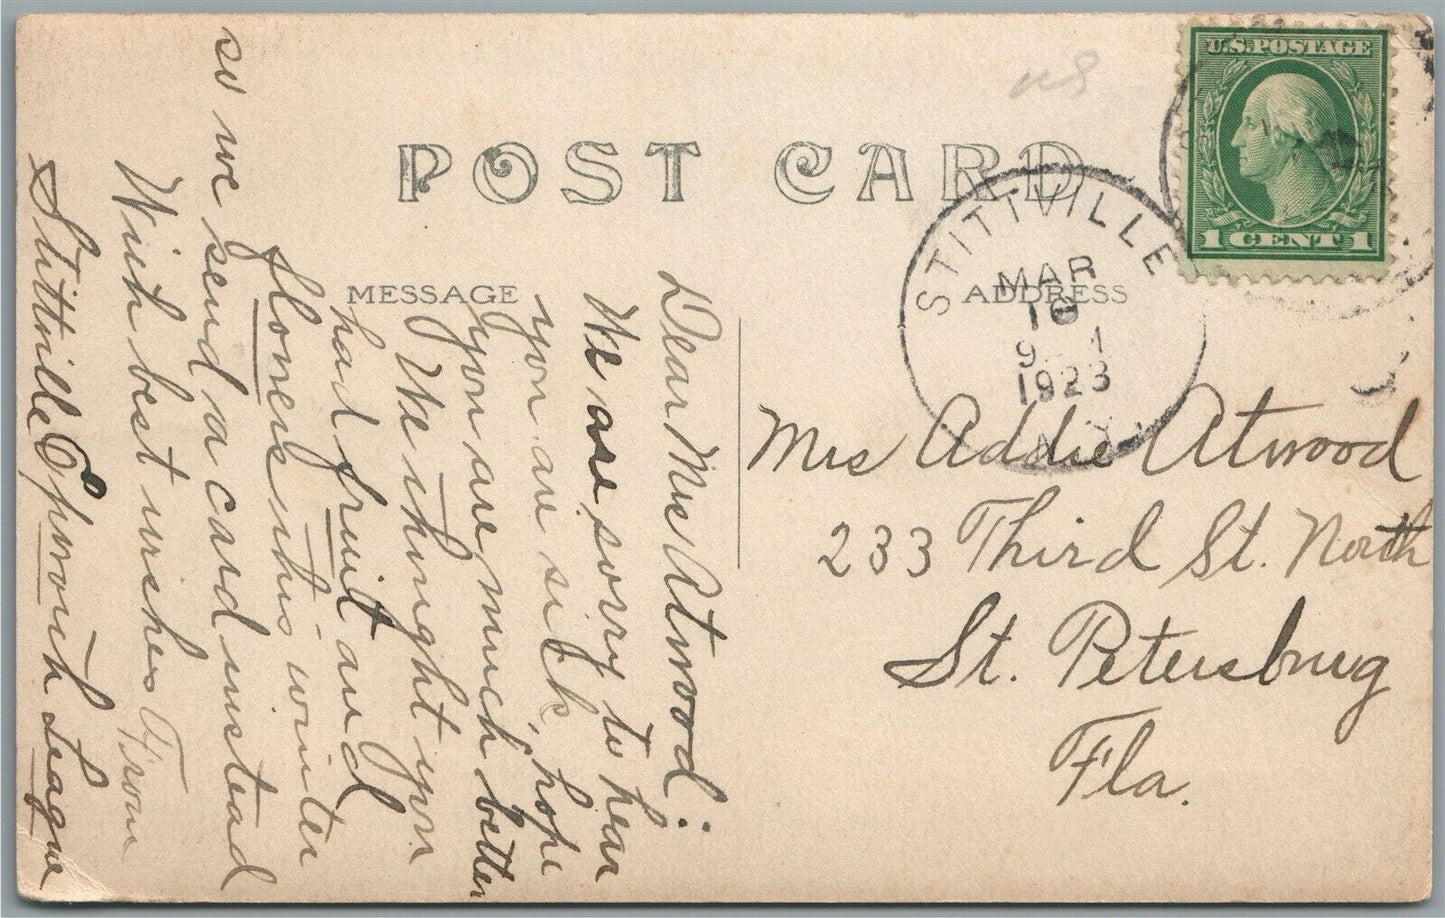 POST CARD
MESSAGE
ADDRESS
U.S. POSTAGE
1 CENT 1
STITTVILLE
MAR
1923
N.Y.
Mrs Addie Atwood
233 Third St. North
St. Petersburg
Fla.
Dear Mrs Atwood:
We are sorry to hear
you are sick, hope
you are much better
We thought you
had fruit and
flowers this winter
so we send a card instead
With best wishes From
Stittville Epworth League